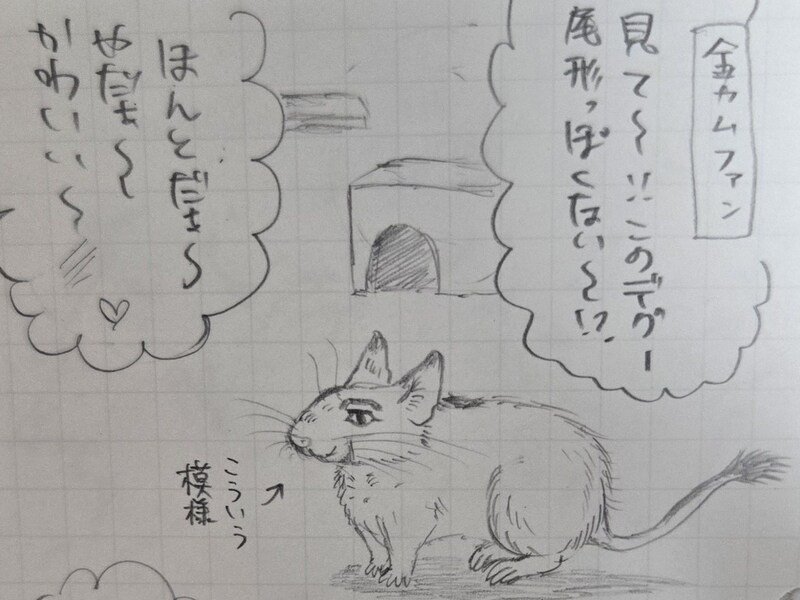 金カムファン
見て〜!!このデグー
尾形っぽくない〜!?
ほんとだぁ〜
やだぁ〜
かわいい〜
こういう
模様